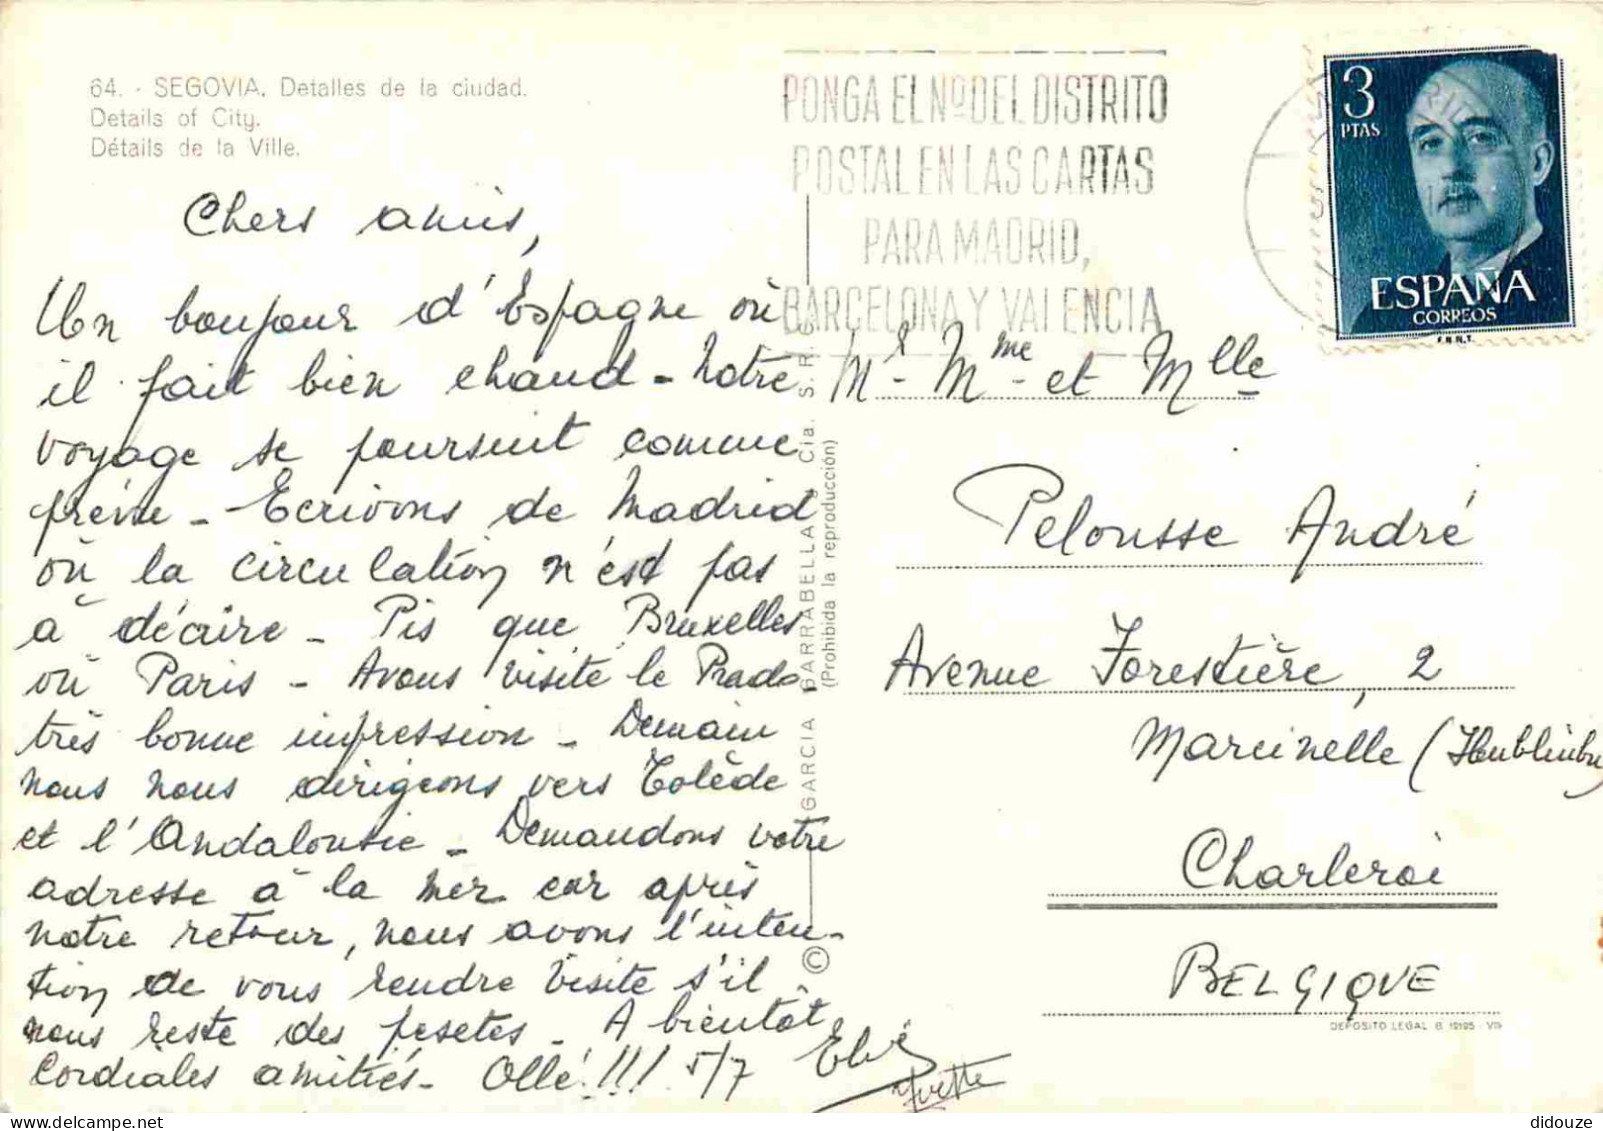 64. - SEGOVIA. Detalles de la ciudad.
Details of City.
Détails de la Ville.
PONGA EL Nº DEL DISTRITO
POSTAL EN LAS CARTAS
PARA MADRID,
BARCELONA Y VALENCIA
3
PTAS
ESPAÑA
CORREOS
F.N.M.T.
Chers amis,
Un bonjour d'Espagne où
il fait bien chaud - Notre
voyage se poursuit comme
prévu - Ecrivons de Madrid
où la circulation n'est pas
à décrire - Pis que Bruxelles
où Paris - Avons visité le Prado,
très bonne impression - Demain
nous nous dirigeons vers Tolède
et l'Andalousie - Demandons votre
adresse à la mer car après
notre retour, nous avons l'inten-
tion de vous rendre visite s'il
nous reste des pesetes - A bientôt
Cordiales amitiés - Ollé!!! 5/7
Yvette
© GARCIA GARRABELLA Y Cia. S. R. C.
(Prohibida la reproducción)
Mr - Mme - et Mlle
Pelousse André
Avenue Forestière, 2
Marcinelle (
Charleroi
BELGIQUE
DEPOSITO LEGAL B. 12195 - VII
didouze